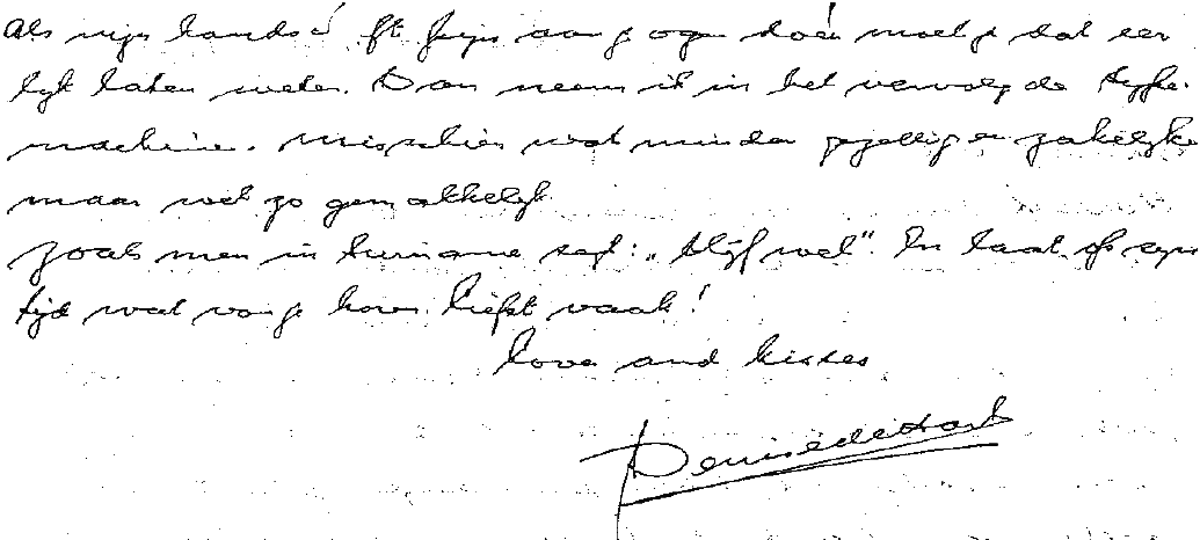 Als mijn handschrift pijn aan je ogen doet moet je dat eer
lijk laten weten. Dan neem ik in het vervolg de type-
machine. Misschien wat minder gezellig en zakelijker
maar wel zo gemakkelijk
Zoals men in Suriname zegt: „blijf wel". En laat op zijn
tijd wat van je horen. Liefst vaak!
Love and kisses
Denise de Hart